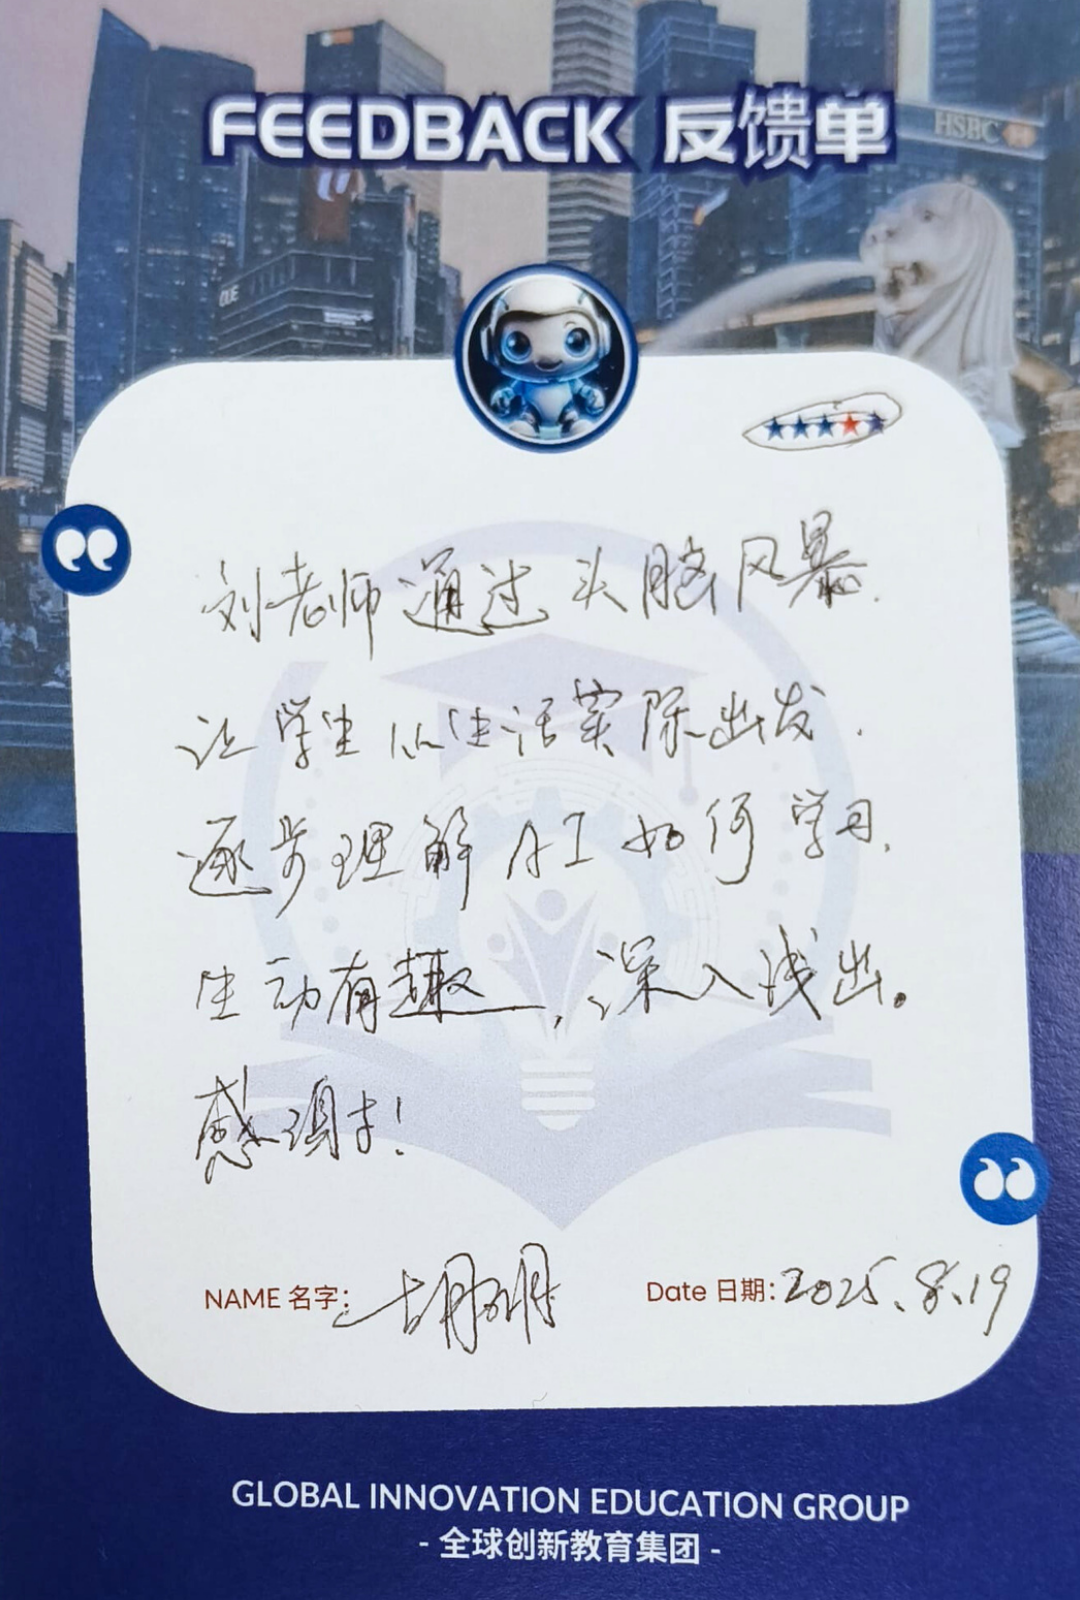 FEEDBACK 反馈单
HSBC
OUE
刘老师通过头脑风暴,
让学生从生活实际出发,
逐步理解AI如何学习,
生动有趣,深入浅出。
感谢!
NAME 名字:胡
Date 日期:2025.8.19
GLOBAL INNOVATION EDUCATION GROUP
- 全球创新教育集团 -